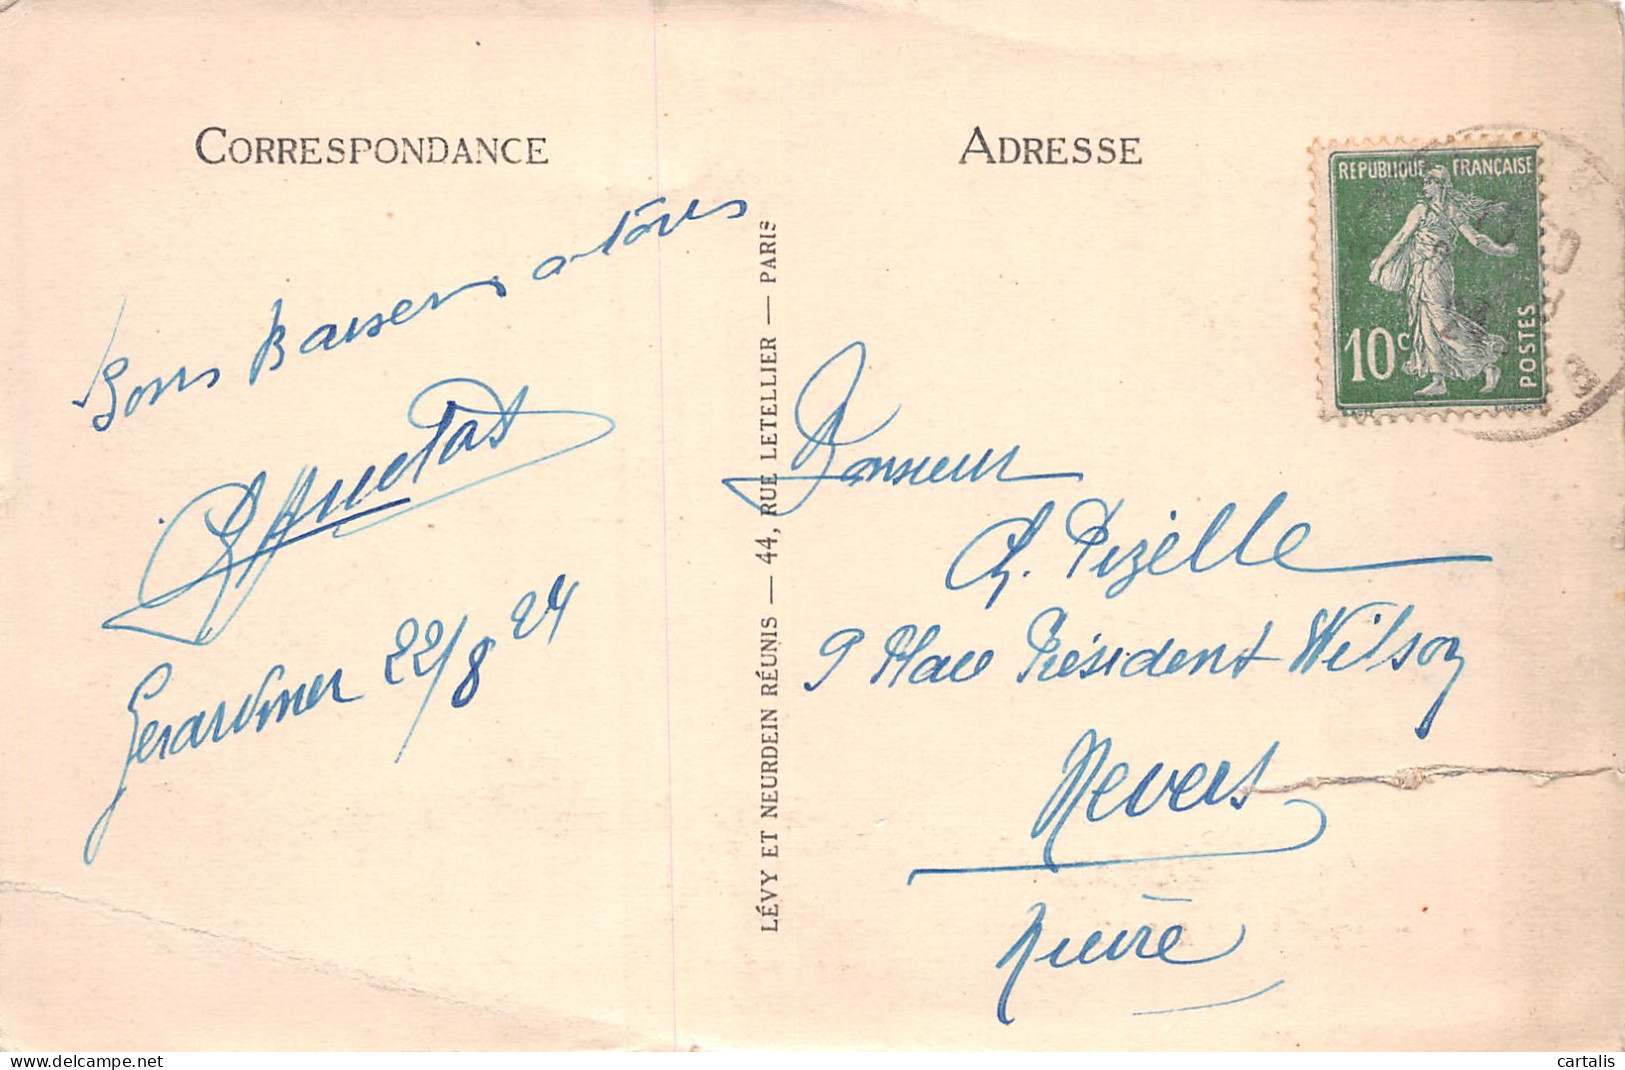 CORRESPONDANCE
ADRESSE
Bons Baisers a tous
Gérardmer 22/8 24
LÉVY ET NEURDEIN RÉUNIS — 44, RUE LETELLIER — PARIS
REPUBLIQUE FRANÇAISE
10c
POSTES
Monsieur
Ch. Pizelle
9 Place Président Wilson
Nevers
Nièvre
delcampe.net
cartalis